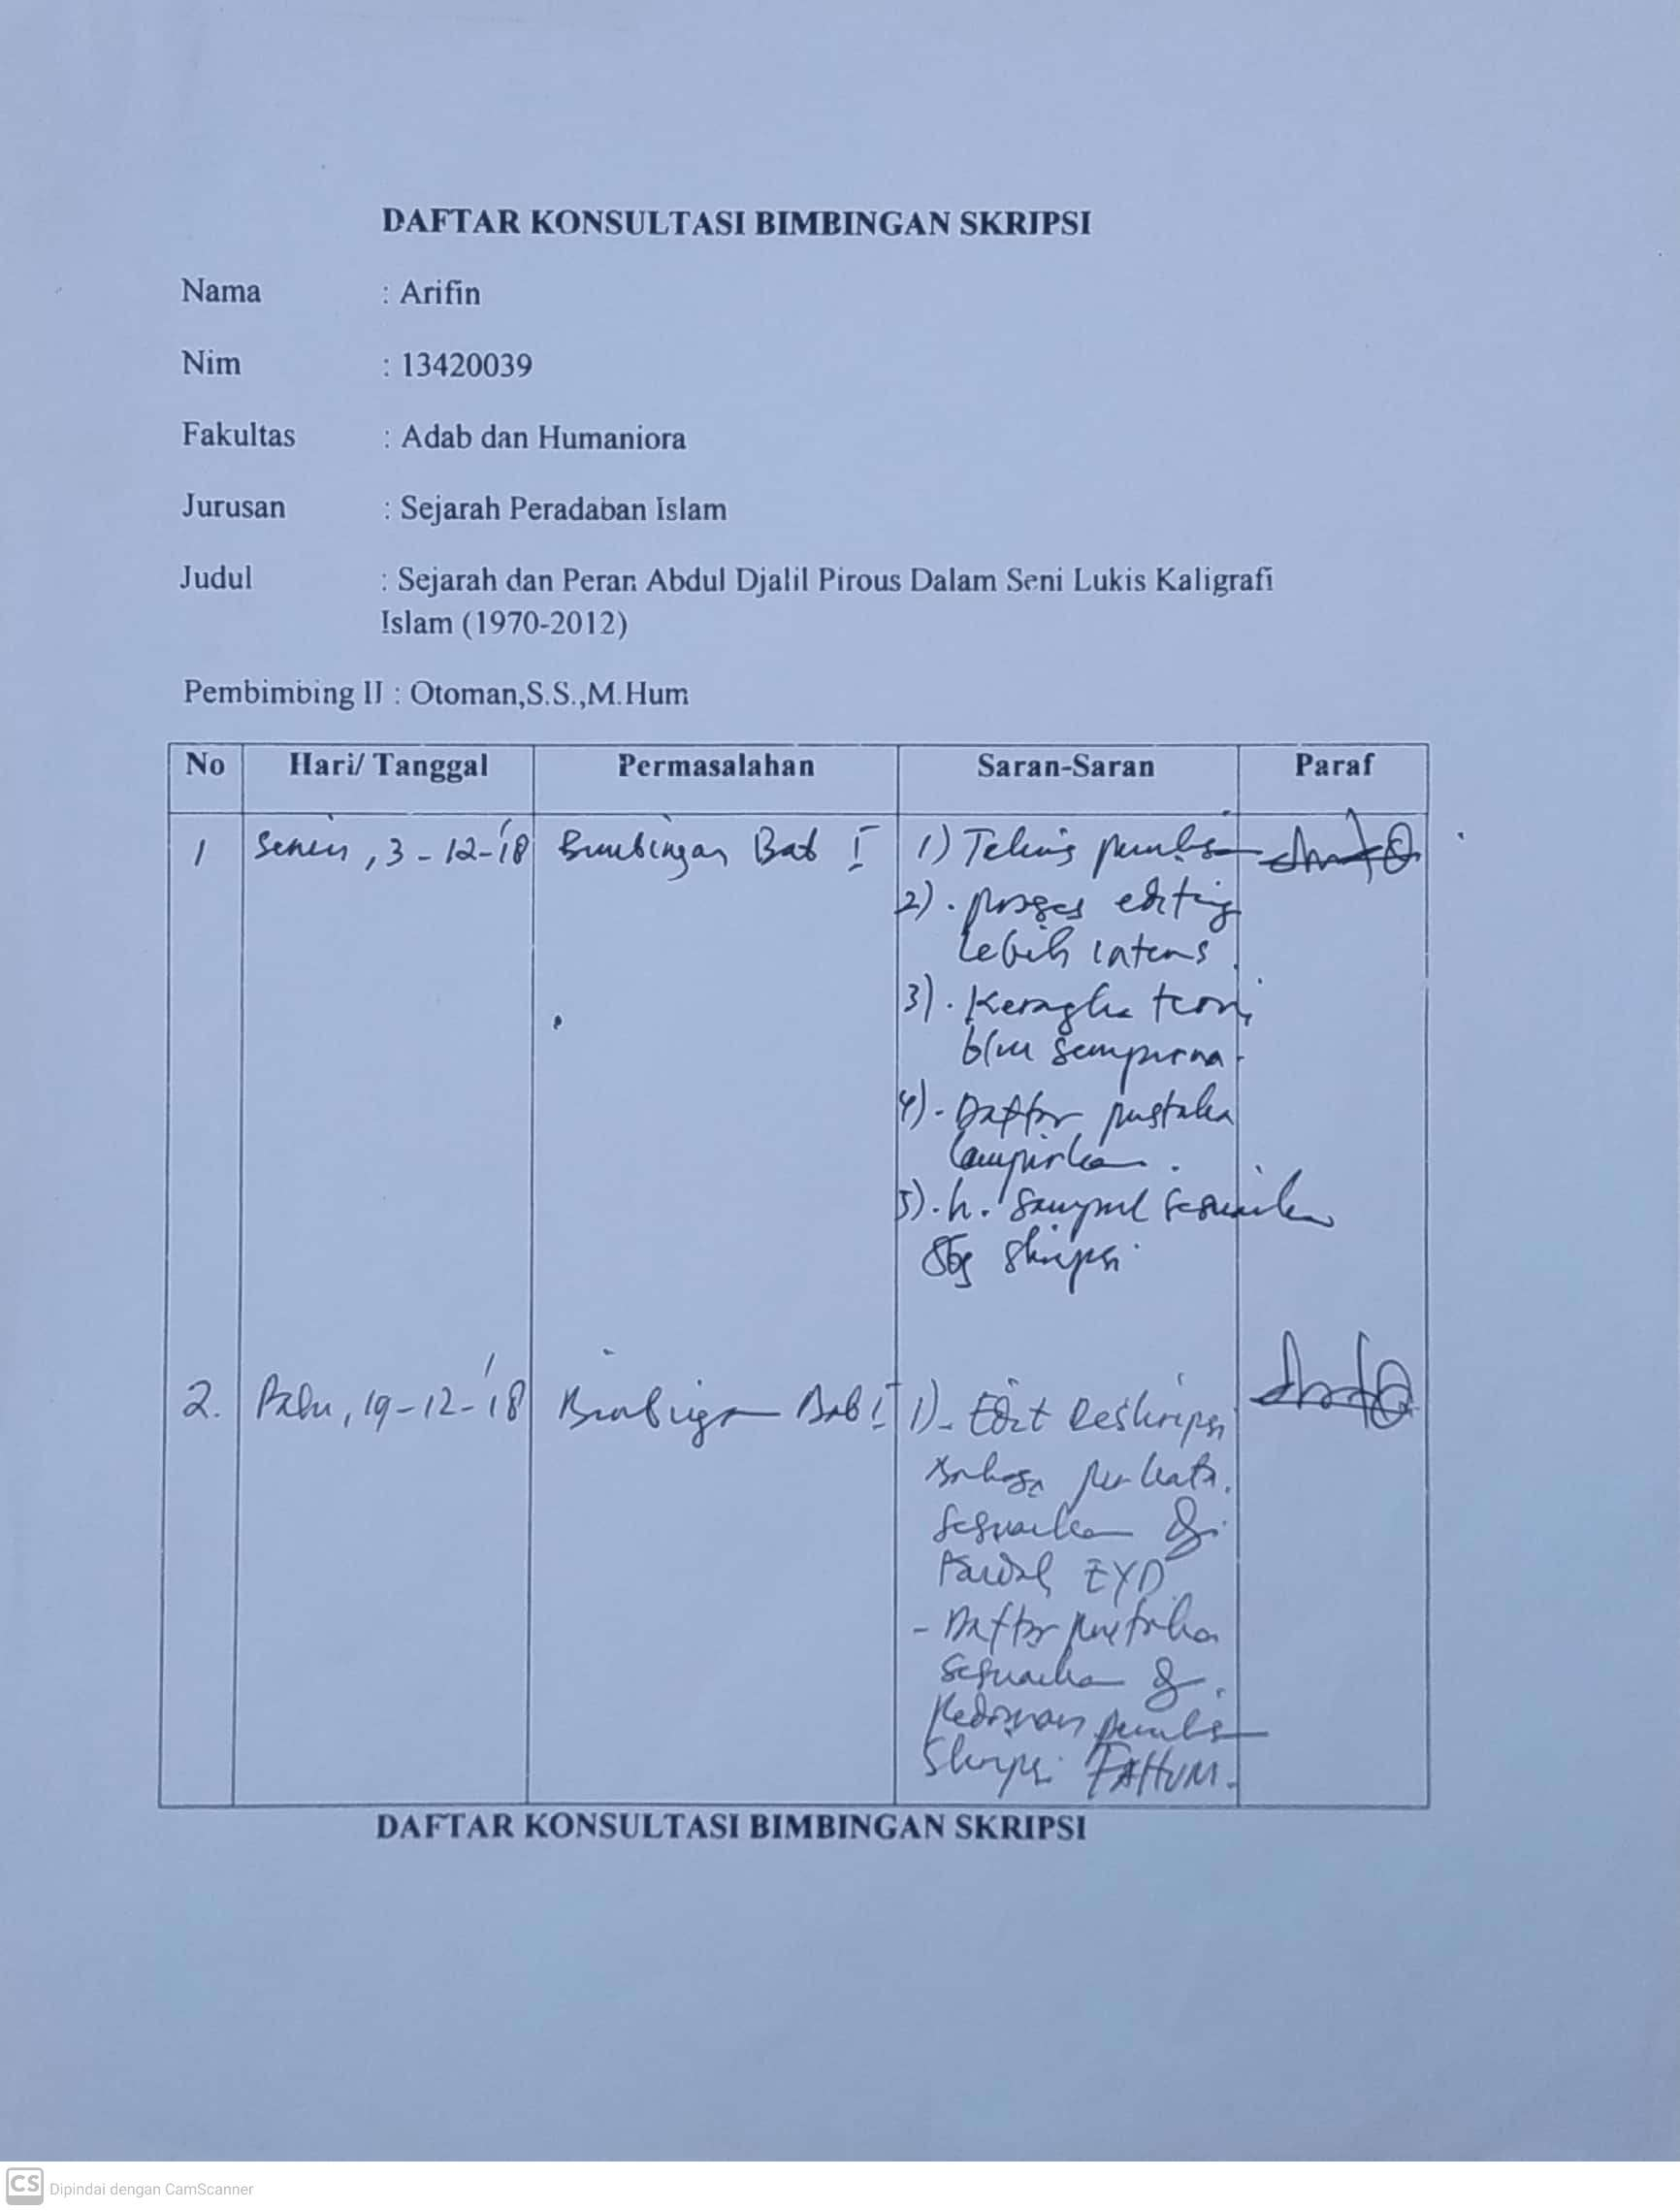 DAFTAR KONSULTASI BIMBINGAN SKRIPSI
Nama : Arifin
Nim : 13420039
Fakultas : Adab dan Humaniora
Jurusan : Sejarah Peradaban Islam
Judul : Sejarah dan Peran Abdul Djalil Pirous Dalam Seni Lukis Kaligrafi
Islam (1970-2012)
Pembimbing II : Otoman,S.S.,M.Hum
No Hari/ Tanggal Permasalahan Saran-Saran Paraf
1 Senin, 3-12-'18 Bimbingan Bab I 1) Teknis
2). proses editing
lebih intens.
3). Kerangka teori
blm sempurna.
4). Daftar pustaka
lampirkan.
5). h. Sampul sesuaikan
sbg skripsi
2. Rabu, 19-12-'18 Bimbingan Bab I 1). Edit deskripsi
bahasa per kata.
Sesuaikan dg.
kaidah EYD
- Daftar pustaka
Sesuaikan dg.
Pedoman
Skripsi FAHUM.
DAFTAR KONSULTASI BIMBINGAN SKRIPSI
CS Dipindai dengan CamScanner